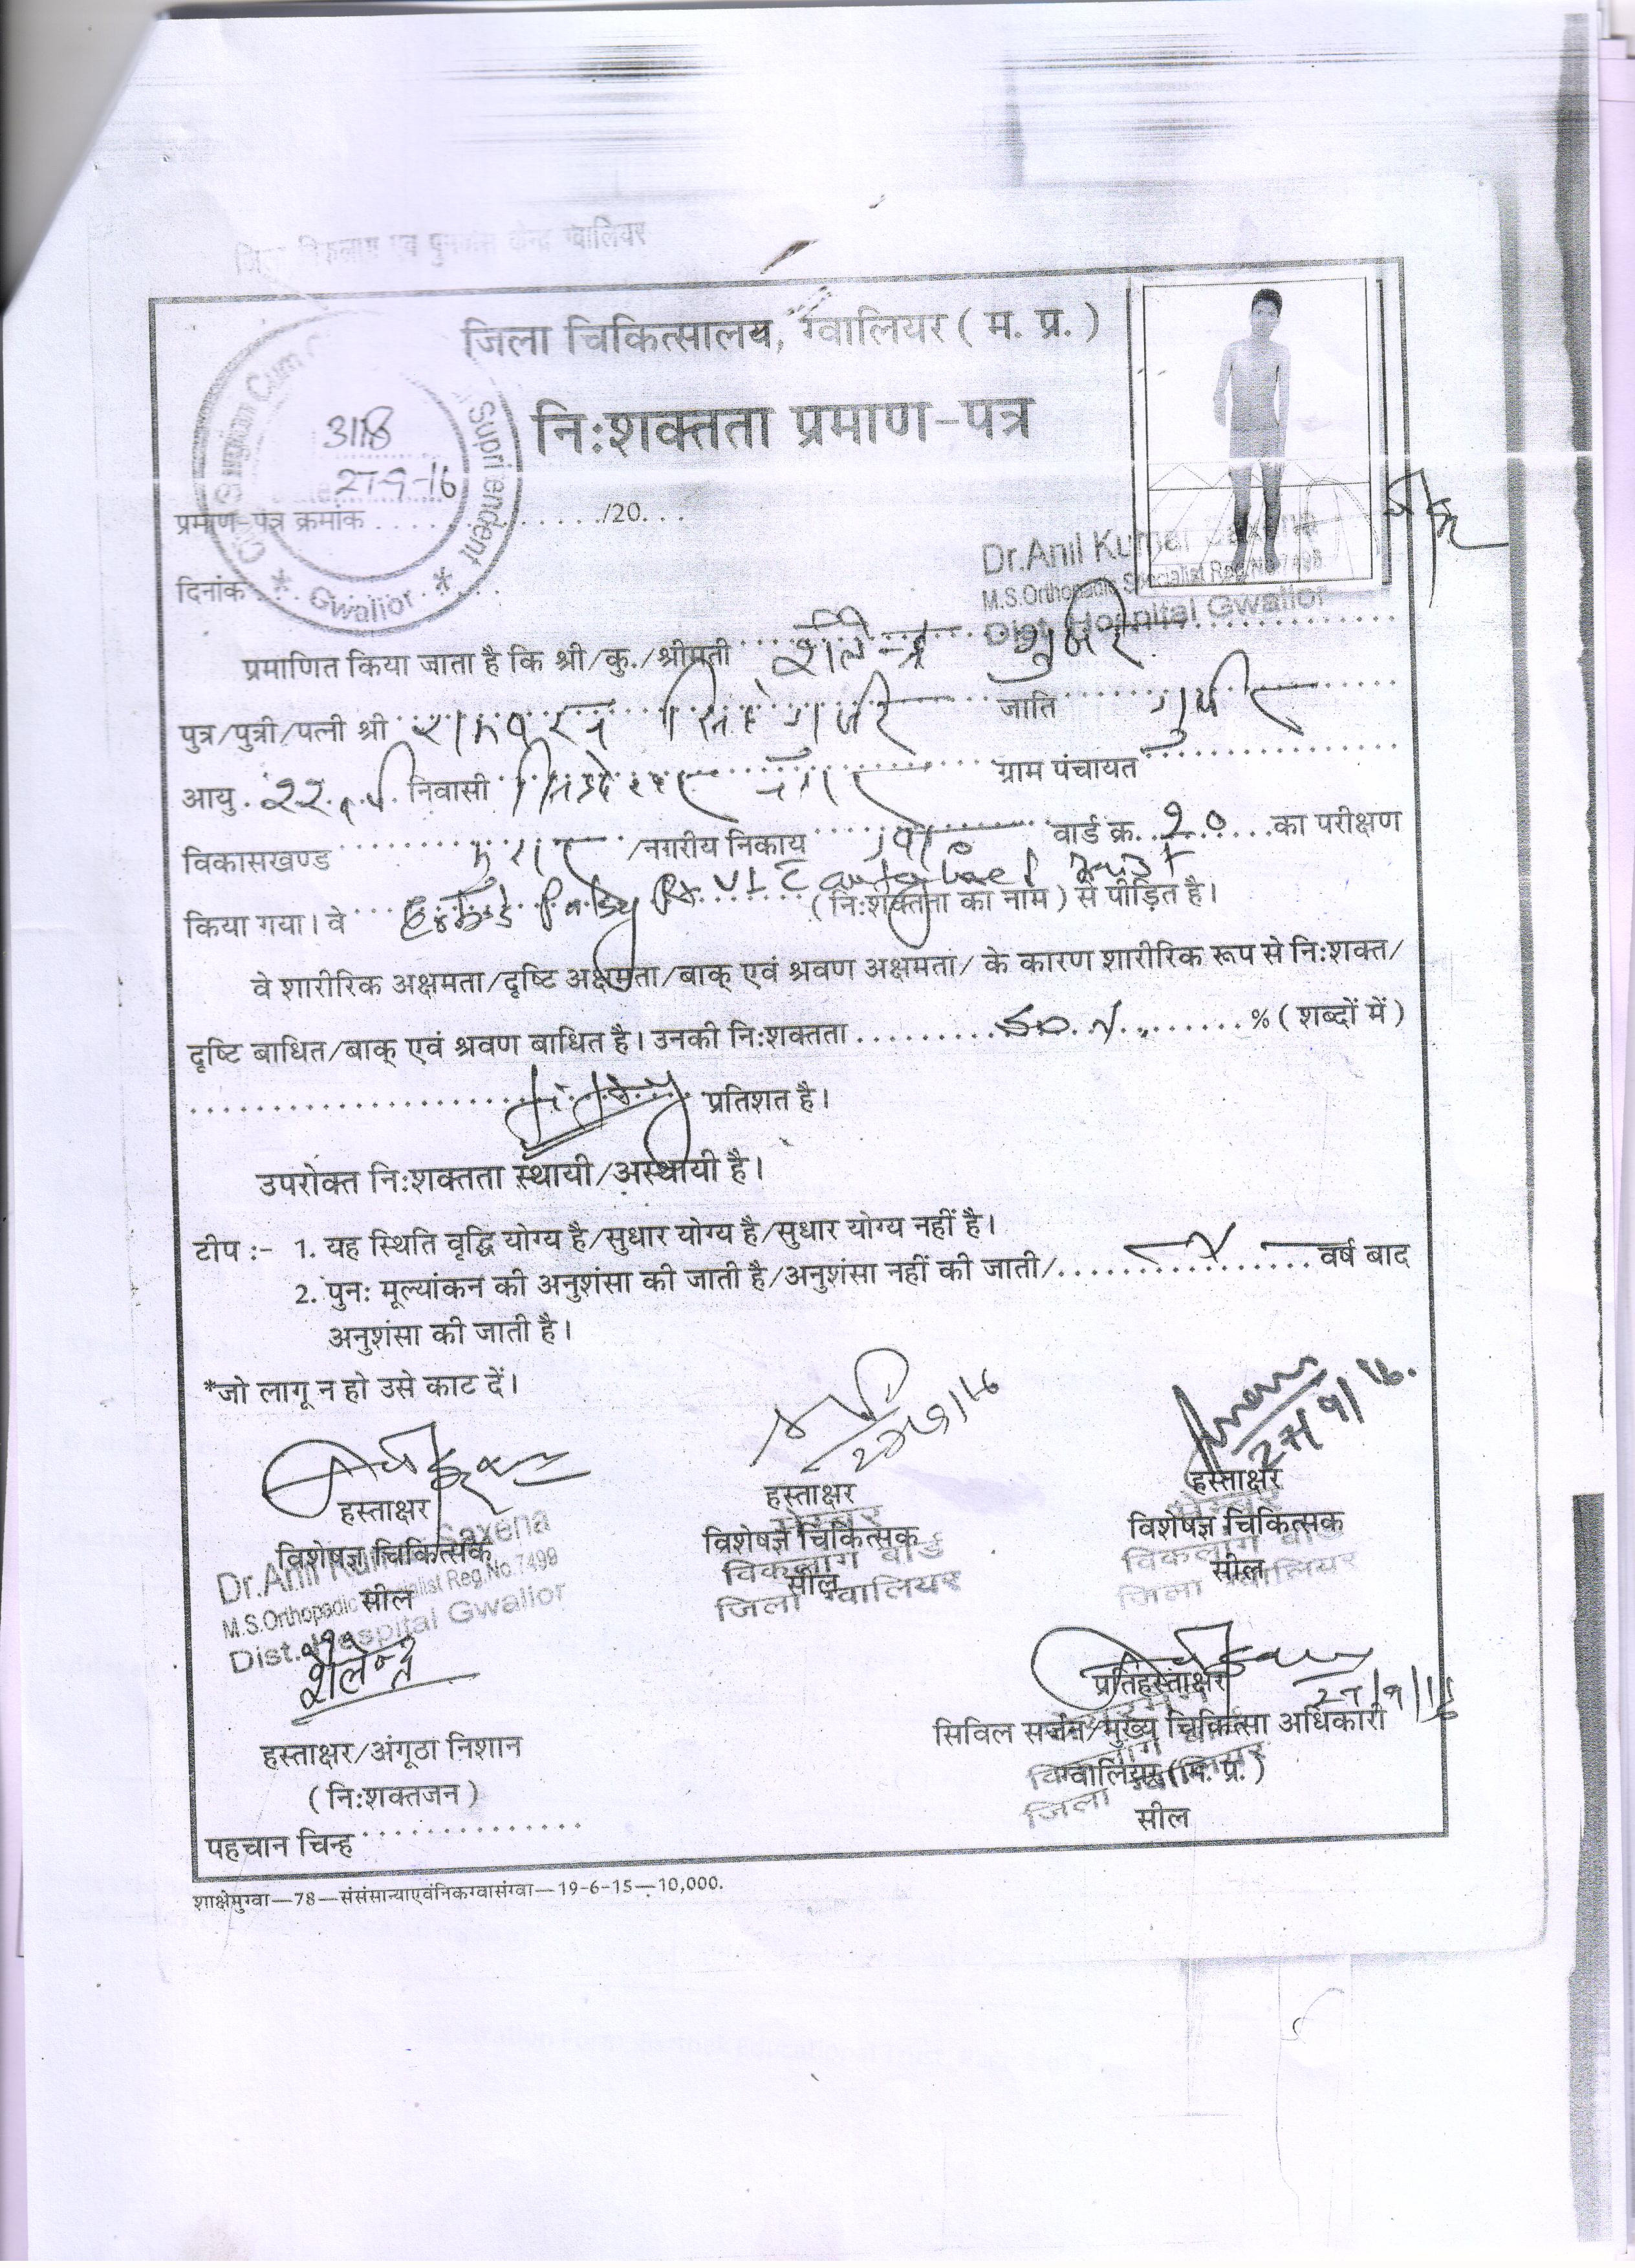 जिला विकलांग एवं पुनर्वास केन्द्र ग्वालियर
जिला चिकित्सालय, ग्वालियर ( म. प्र. )
निःशक्तता प्रमाण-पत्र
Supritendent
Gwalior
3118
27-9-16
प्रमाण-पत्र क्रमांक ............ /20...
दिनांक
Dr.Anil Kumar Saxena
M.S.Orthopadic Specialist Reg.No.7499
Dist. Hospital Gwalior
प्रमाणित किया जाता है कि श्री/कु./श्रीमती शैलेन्द्र गुर्जर
पुत्र/पुत्री/पत्नी श्री सिंह गुर्जर जाति गुर्जर
आयु 22 निवासी नगर ग्राम पंचायत
विकासखण्ड मुरार /नगरीय निकाय वार्ड क्र. 20 का परीक्षण
किया गया। वे Erb's Palsy (निःशक्तता का नाम) से पीड़ित है।
वे शारीरिक अक्षमता/दृष्टि अक्षमता/बाक् एवं श्रवण अक्षमता/ के कारण शारीरिक रूप से निःशक्त/
दृष्टि बाधित/बाक् एवं श्रवण बाधित है। उनकी निःशक्तता 50 % % ( शब्दों में )
fifty प्रतिशत है।
उपरोक्त निःशक्तता स्थायी/अस्थायी है।
टीप :- 1. यह स्थिति वृद्धि योग्य है/सुधार योग्य है/सुधार योग्य नहीं है।
2. पुनः मूल्यांकन की अनुशंसा की जाती है/अनुशंसा नहीं की जाती/................ वर्ष बाद
अनुशंसा की जाती है।
*जो लागू न हो उसे काट दें।
27/9/16
27/9/16.
हस्ताक्षर
हस्ताक्षर
हस्ताक्षर
विशेषज्ञ चिकित्सक
विशेषज्ञ चिकित्सक
विशेषज्ञ चिकित्सक
सील
सील
सील
Dr.Anil Kumar Saxena
M.S.Orthopadic Specialist Reg.No.7499
Dist. Hospital Gwalior
मेम्बर
विकलांग बोर्ड
जिला ग्वालियर
मेम्बर
विकलांग बोर्ड
जिला ग्वालियर
शैलेन्द्र
27/9/16
प्रतिहस्ताक्षर
सिविल सर्जन/मुख्य चिकित्सा अधिकारी
ग्वालियर ( म. प्र. )
सील
हस्ताक्षर/अंगूठा निशान
( निःशक्तजन )
पहचान चिन्ह ...............
शाक्षेमुग्वा—78—संसंसान्याएवंनिकग्वासंग्वा—19-6-15—10,000.